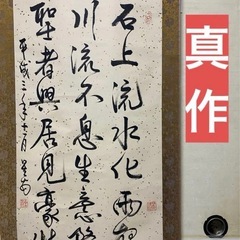 真作
石上流水化雨
川流不息生意
聖者興居見豪
平成三年